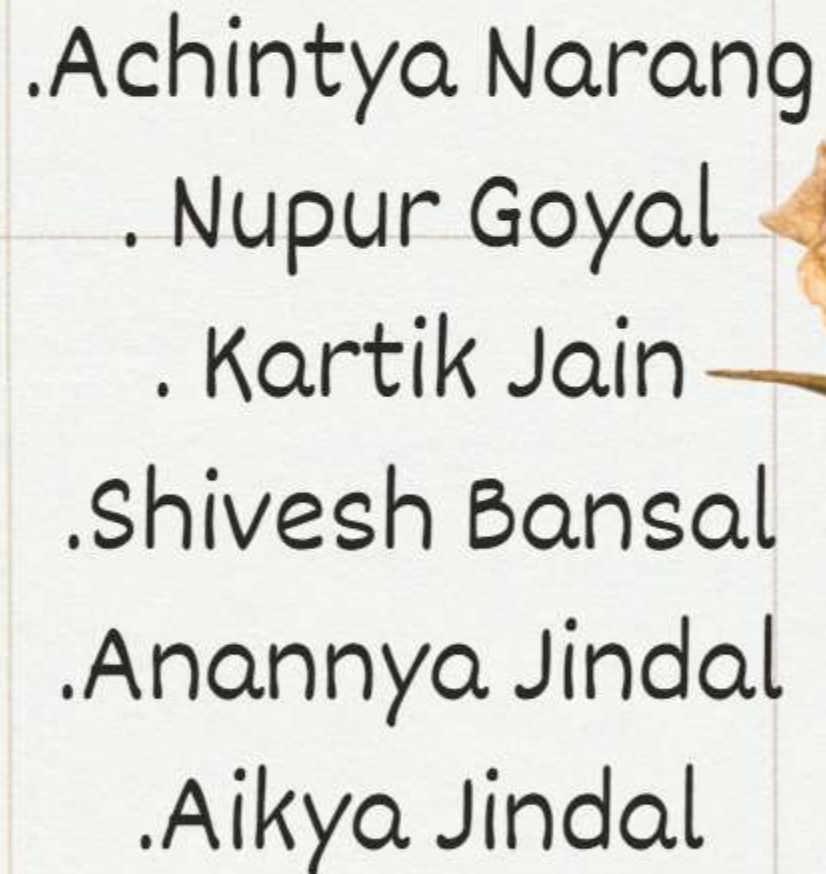 .Achintya Narang
. Nupur Goyal
. Kartik Jain
.Shivesh Bansal
.Anannya Jindal
.Aikya Jindal